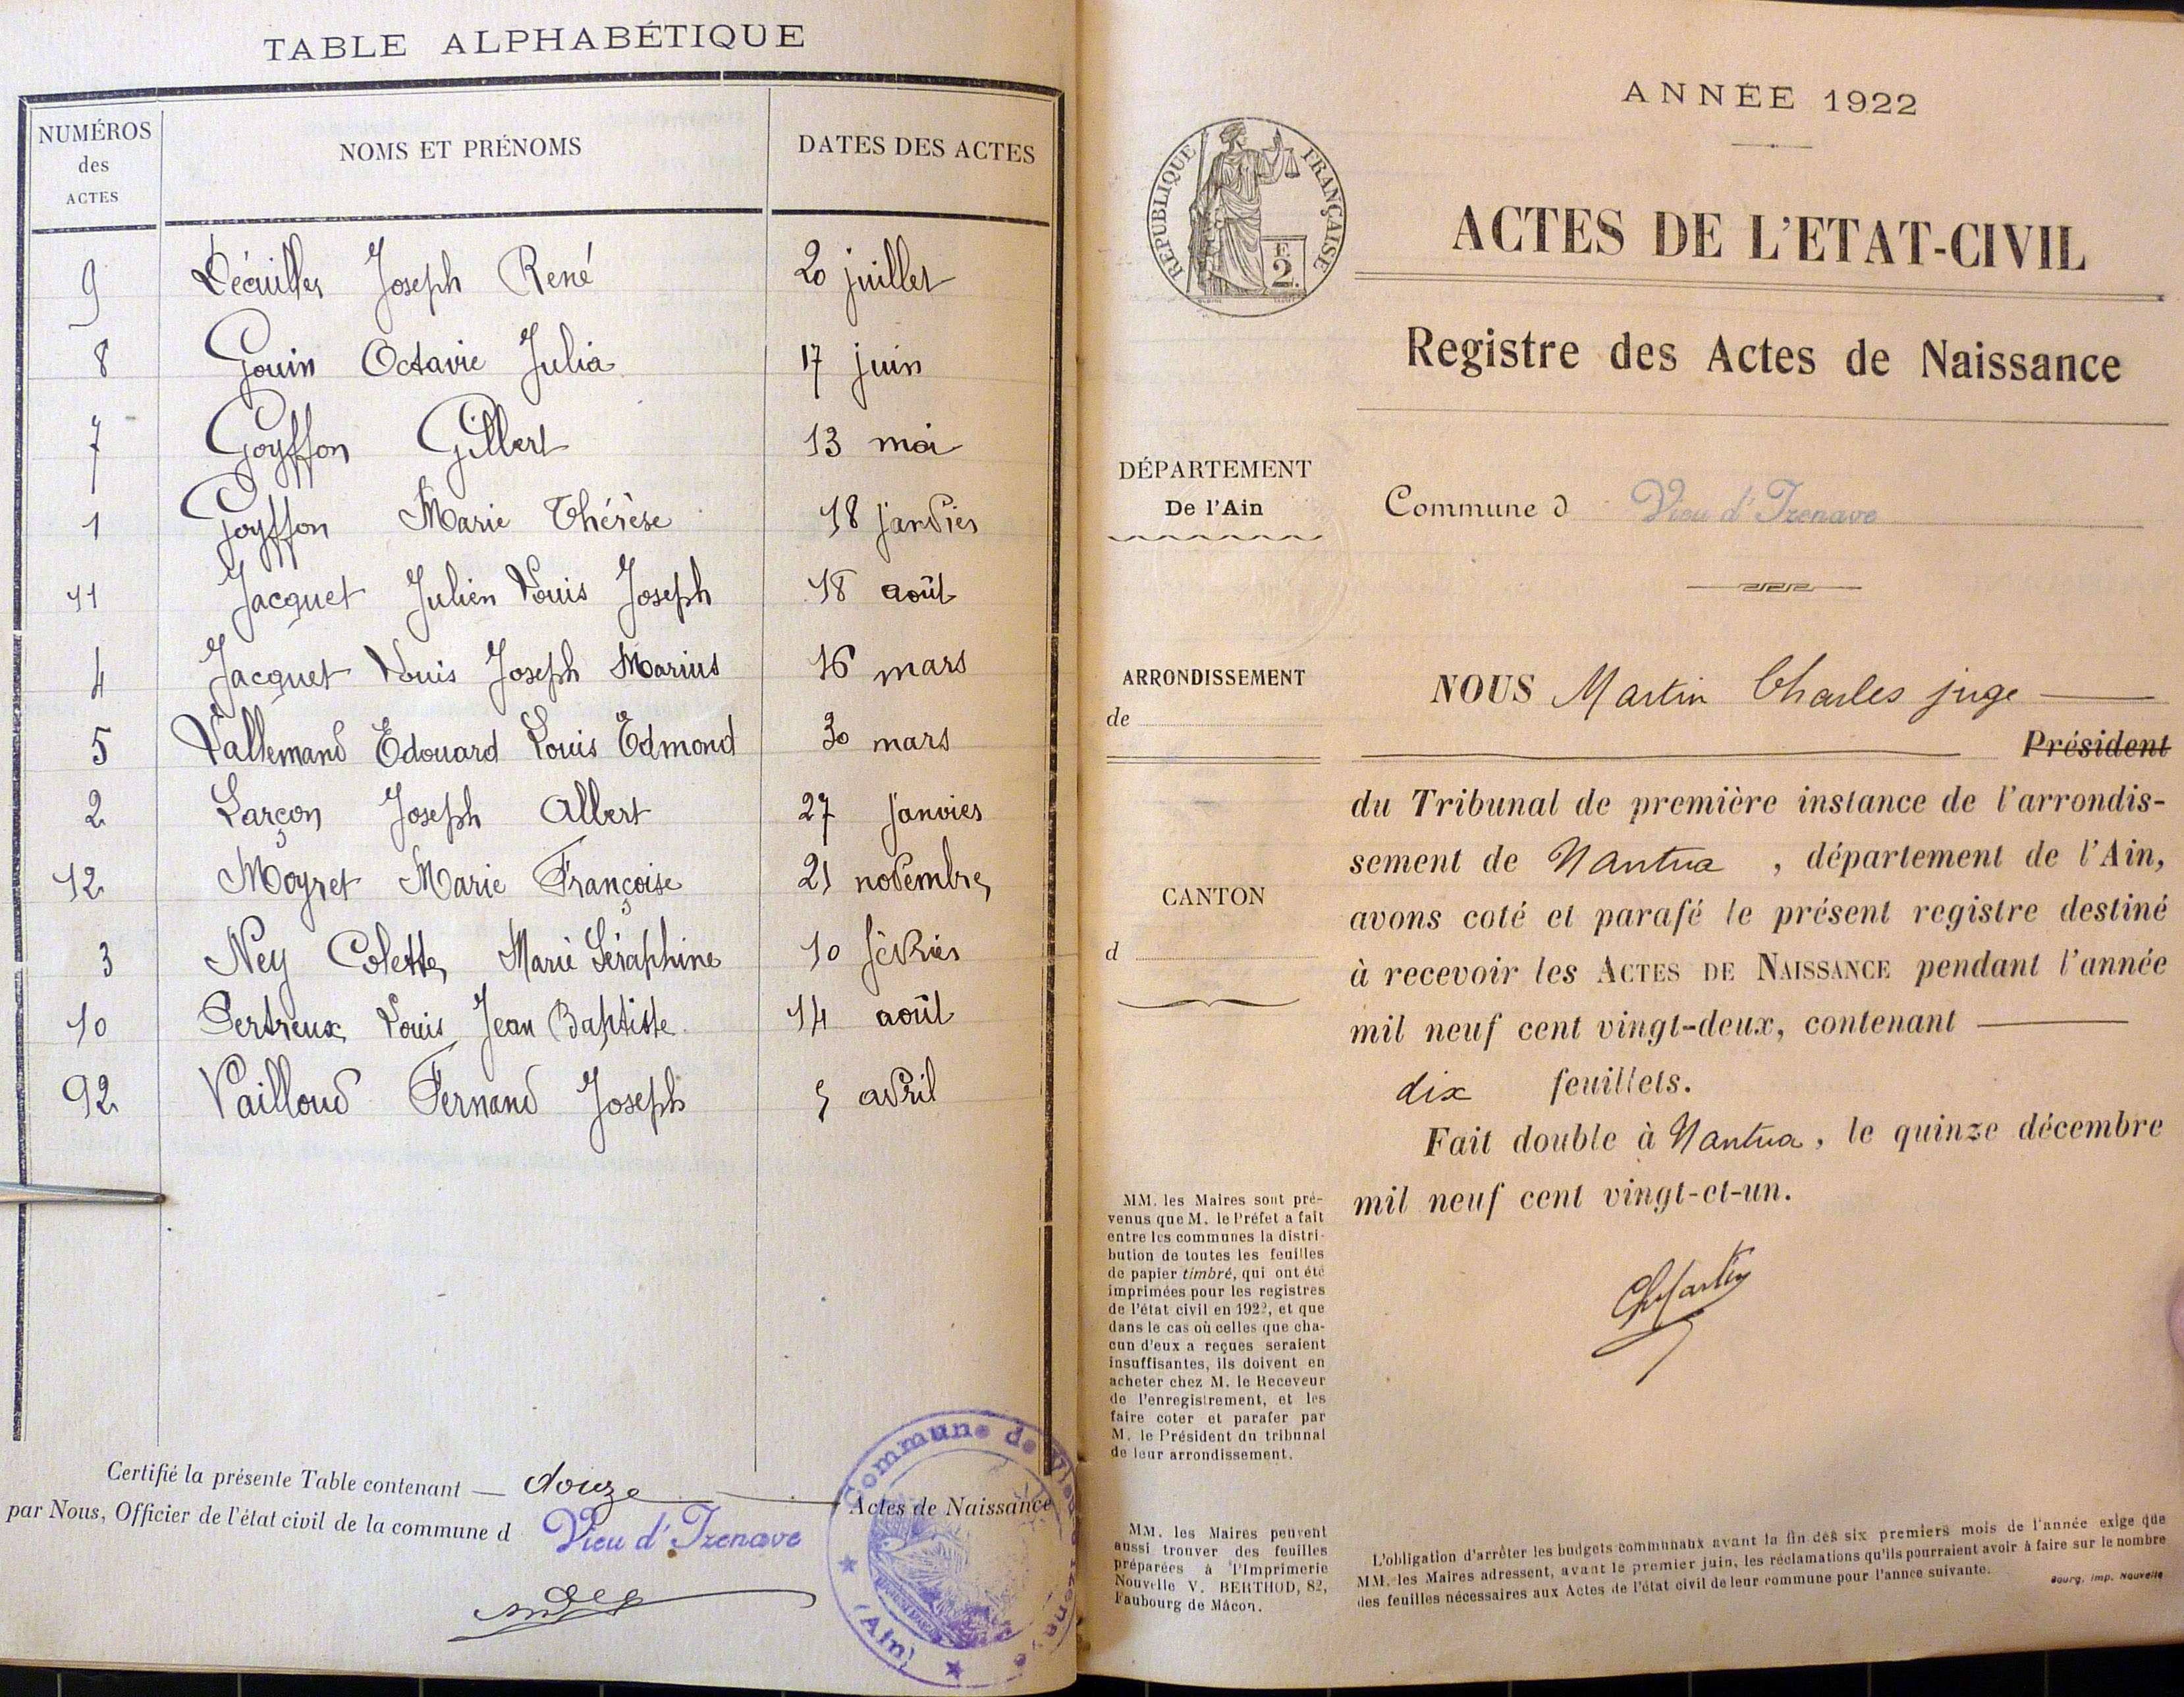 TABLE ALPHABÉTIQUE
NUMÉROS
des
ACTES
NOMS ET PRÉNOMS
DATES DES ACTES
9 Joseph René 20 juillet
8 Gouin Octavie Julia 17 juin
7 Goyffon Gilbert 13 mai
1 Goyffon Marie Thérèse 18 janvier
11 Jacquet Julien Louis Joseph 18 août
4 Jacquet Louis Joseph Marius 16 mars
5 Lallemand Edouard Louis Edmond 30 mars
2 Larçon Joseph Albert 27 janvier
12 Moyret Marie Françoise 21 novembre
3 Ney Colette Marie Séraphine 10 février
10 Pertreux Louis Jean Baptiste 14 août
Vailloud Fernand Joseph 5 avril
Certifié la présente Table contenant — douze — Actes de Naissance
par Nous, Officier de l'état civil de la commune d Vieu d'Izenave
Commune de Vieu d'Izenave
(Ain)
ANNÉE 1922
RÉPUBLIQUE FRANÇAISE
2F.
ACTES DE L'ETAT-CIVIL
Registre des Actes de Naissance
DÉPARTEMENT
De l'Ain
Commune d Vieu d'Izenave
ARRONDISSEMENT
de
CANTON
d
NOUS Martin Charles juge
Président
du Tribunal de première instance de l'arrondis-
sement de Nantua , département de l'Ain,
avons coté et parafé le présent registre destiné
à recevoir les ACTES DE NAISSANCE pendant l'année
mil neuf cent vingt-deux, contenant —
dix feuillets.
Fait double à Nantua, le quinze décembre
mil neuf cent vingt-et-un.
ChMartin
MM. les Maires sont pré-
venus que M. le Préfet a fait
entre les communes la distri-
bution de toutes les feuilles
de papier timbré, qui ont été
imprimées pour les registres
de l'état civil en 1922, et que
dans le cas où celles que cha-
cun d'eux a reçues seraient
insuffisantes, ils doivent en
acheter chez M. le Receveur
de l'enregistrement, et les
faire coter et parafer par
M. le Président du tribunal
de leur arrondissement.
MM. les Maires peuvent
aussi trouver des feuilles
préparées à l'Imprimerie
Nouvelle V. BERTHOD, 82,
Faubourg de Mâcon.
L'obligation d'arrêter les budgets communaux avant la fin des six premiers mois de l'année exige que
MM. les Maires adressent, avant le premier juin, les réclamations qu'ils pourraient avoir à faire sur le nombre
des feuilles nécessaires aux Actes de l'état civil de leur commune pour l'année suivante.
Bourg, Imp. Nouvelle